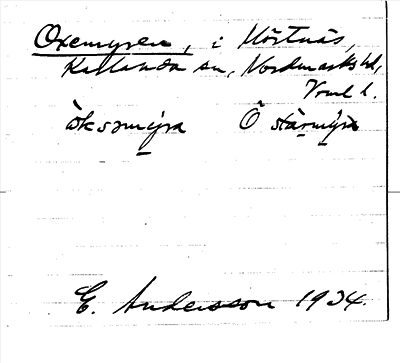 Oxemyren, i Höstnäs,
Karlanda sn, Nordmarks hd,
Vrml. l.
òksəmýra Ö stàrmýra
E. Andersson 1934.